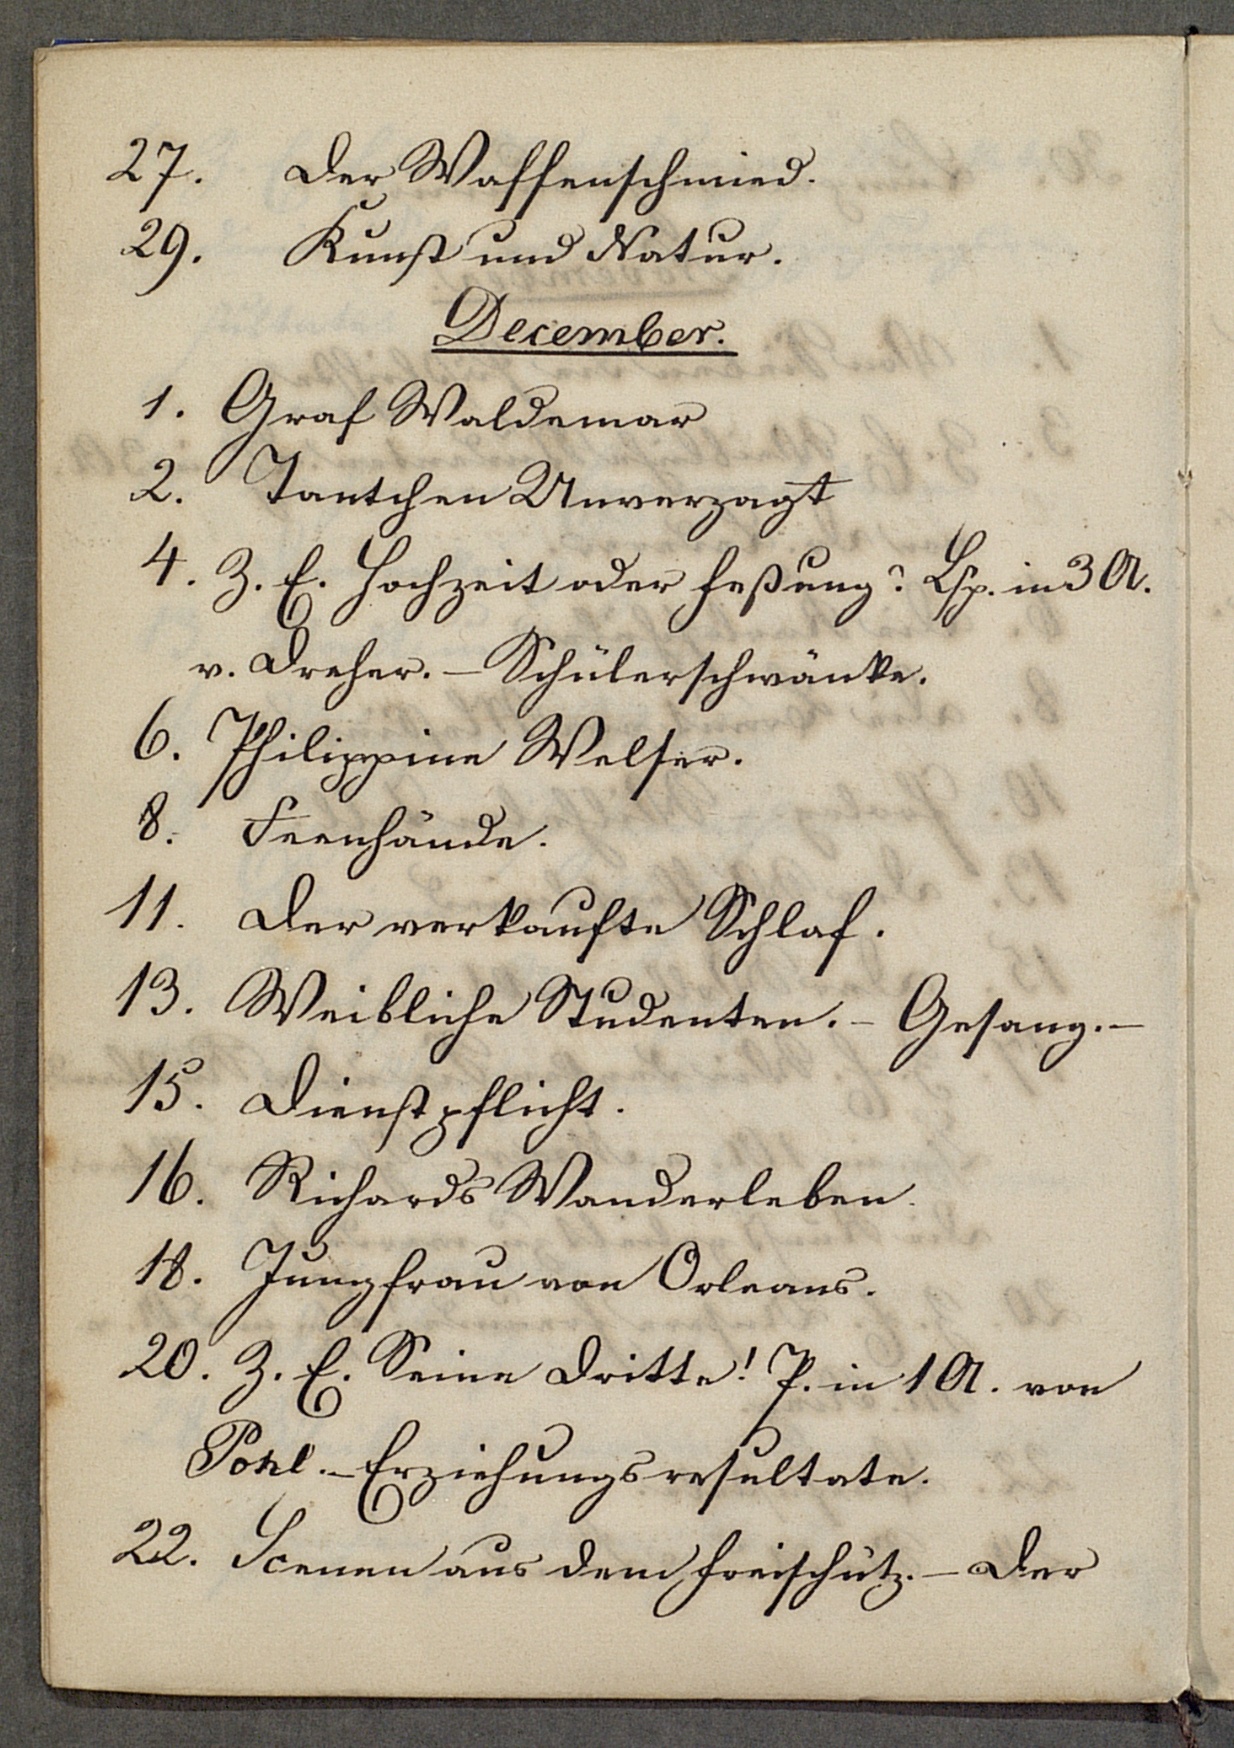 27. Der Waffenschmied.
29. Kunst und Natur.
December.
1. Graf Waldemar
2. Tantchen Unverzagt
4. Z. E. Hochzeit oder Festung? Lsp. in 3 A.
v. Dreher. – Schülerschwänke.
6. Philippine Welser.
8. Feenhände.
11. Der verkaufte Schlaf.
13. Weibliche Studenten. – Gesang. –
15. Dienstpflicht.
16. Richards Wanderleben.
18. Jungfrau von Orleans.
20. Z. E. Seine Dritte! P. in 1 A. von
Pohl. – Erziehungsresultate.
22. Scenen aus dem Freischütz. – Der